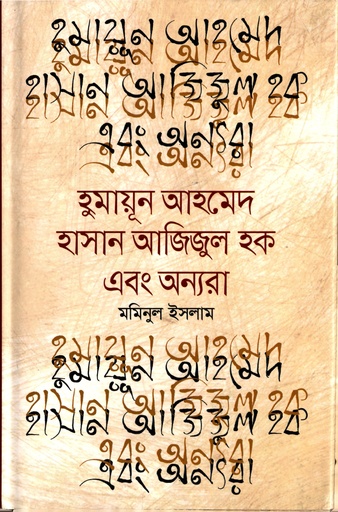 হুমায়ূন আহমেদ
হাসান আজিজুল হক
এবং অন্যরা
হুমায়ূন আহমেদ
হাসান আজিজুল হক
এবং অন্যরা
মমিনুল ইসলাম
হুমায়ূন আহমেদ
হাসান আজিজুল হক
এবং অন্যরা